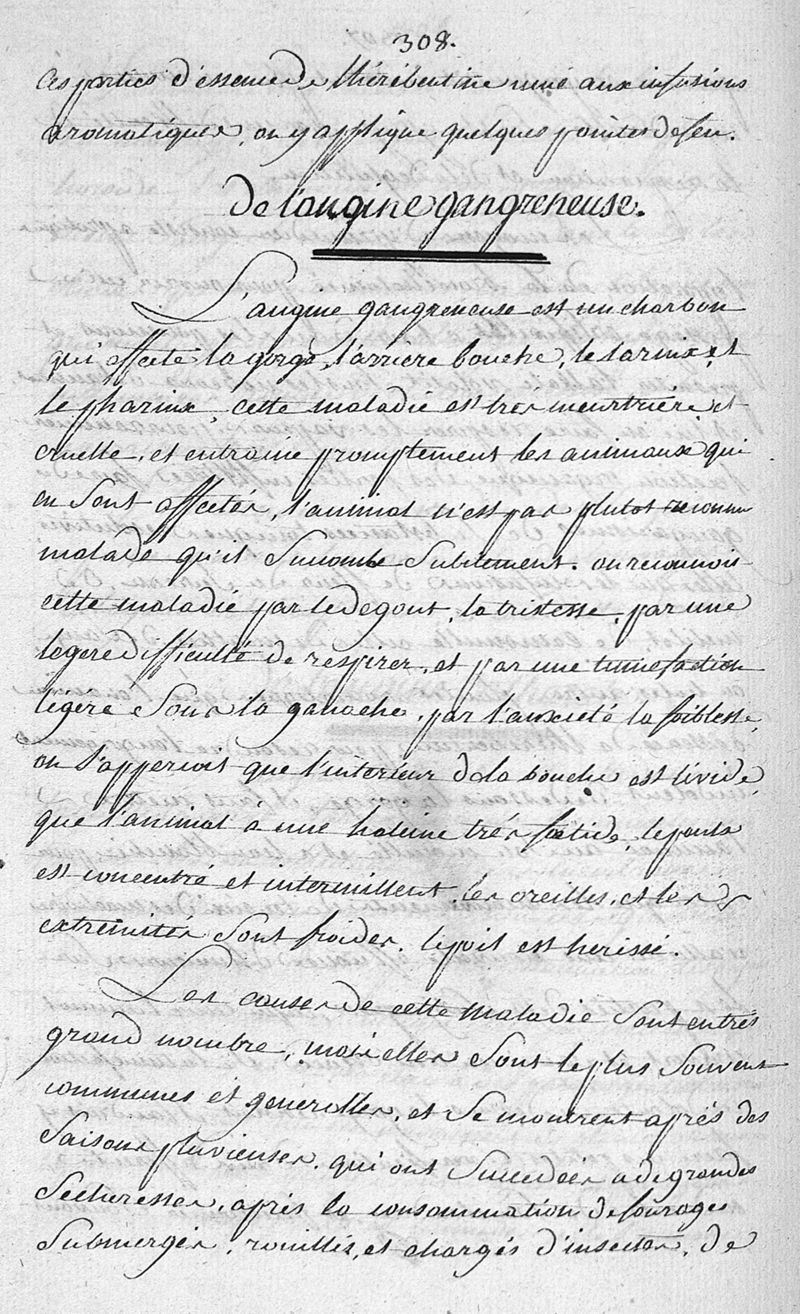 308.
ces parties d'éssence de thérébentine unié aux infusions
aromatiques, on y applique quelques pointes de feu.
De l'angine gangreneuse.
L'angine gangreneuse est un charbon
qui affecte la gorge, l'arrière bouche, le larinx, et
le pharinx, cette maladie est tres meurtrière et
cruelle, et entraine promptement les animaux qui
en sont affectés, l'animal n'est pas plutot reconnu
malade qu'il succombe subitement. on reconnois
cette maladie par le degout, la tristesse, par une
legere difficulté de respirer, et par une tumefaction
légère sous la ganache, par l'anxieté la foiblesse,
on s'apperçois que l'interieur de la bouche est livide,
que l'animal à une haleine trés foetide, le pouls
est concentré et intermittent, les oreilles, et les
extremites sont froides, le poil est herissé.
Les causes de cette maladie sont en trés
grand nombre, mais elles sont le plus souvent
communes et generalles, et se montrent aprés des
saisons pluvieuses, qui ont succedées a de grandes
secheresses, aprés la consommation de fourages
submergés, rouillés, et chargés d'insectes, de